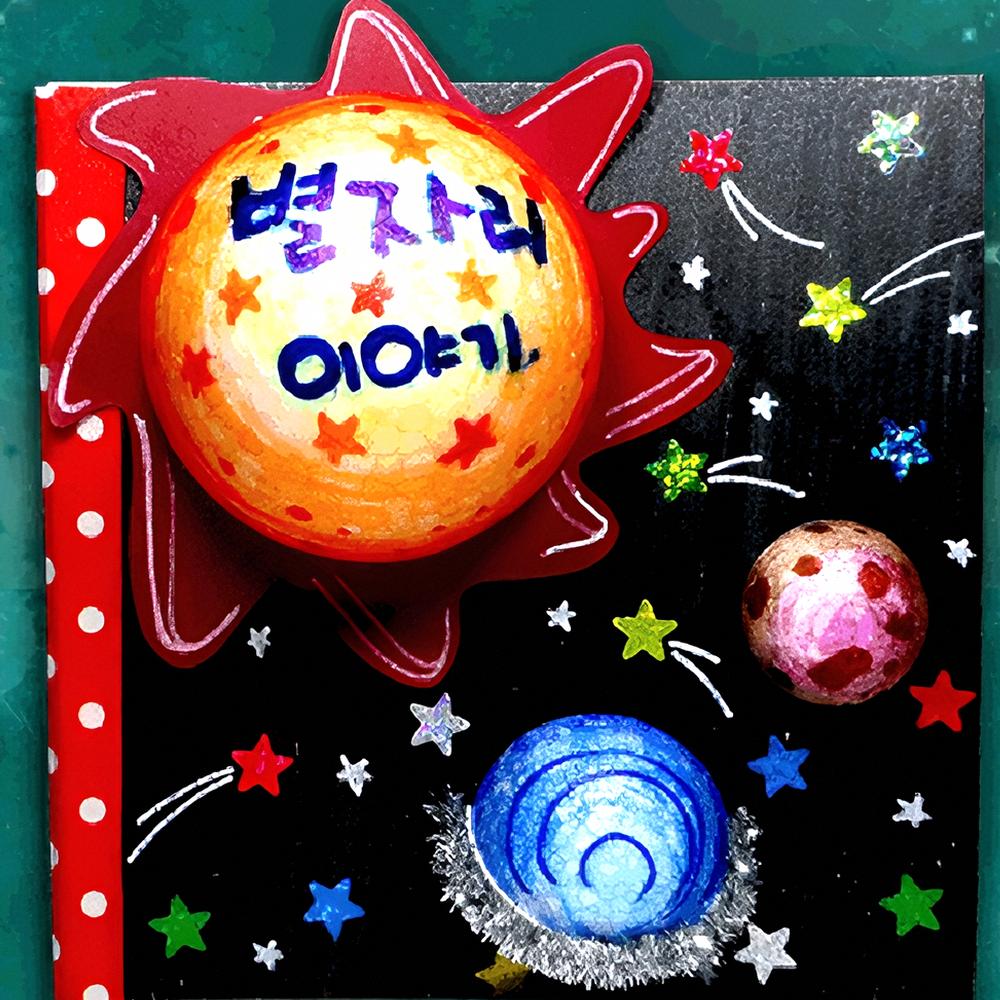 별자리
이야기